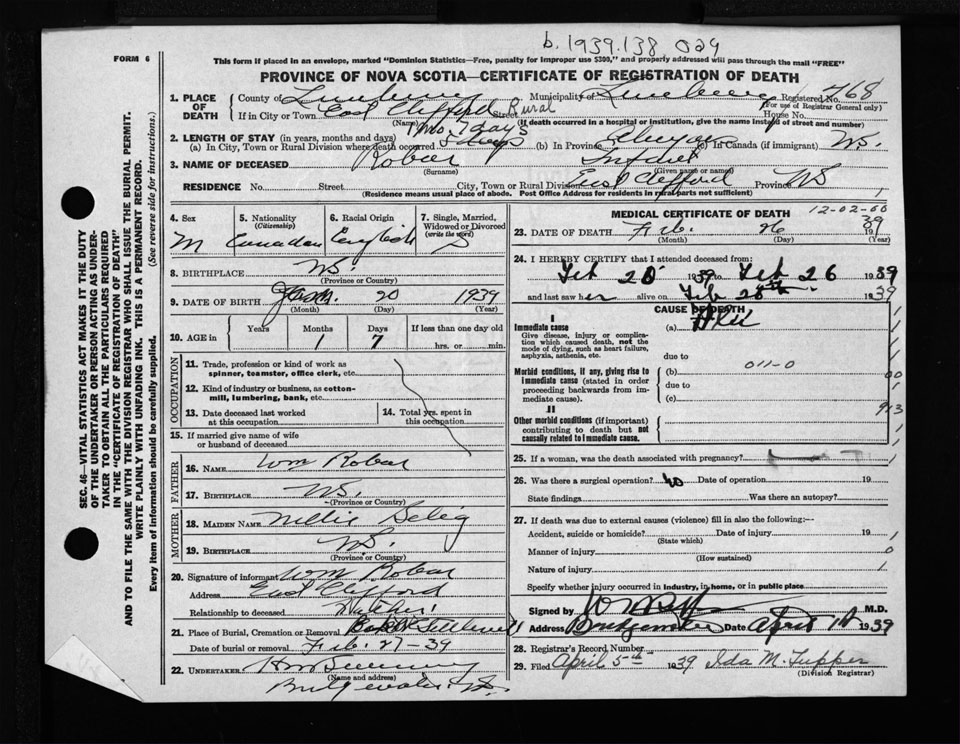 b. 1939.138, 029
FORM 6
This form if placed in an envelope, marked "Dominion Statistics—Free, penalty for improper use $300," and properly addressed will pass through the mail "FREE"
PROVINCE OF NOVA SCOTIA—CERTIFICATE OF REGISTRATION OF DEATH
1. PLACE OF DEATH County of Lunenburg Municipality of Lunenburg Registered No. 768
(For use of Registrar General only)
If in City or Town East Clifford Street Rural House No.
(Name) (If death occurred in a hospital or institution, give the name instead of street and number)
1 mo. 7 days
2. LENGTH OF STAY (in years, months and days)
(a) In City, Town or Rural Division where death occurred days (b) In Province Always (c) In Canada (if immigrant) NS.
3. NAME OF DECEASED Robar Infant
(Surname) (Given name or names)
RESIDENCE No. Street City, Town or Rural Division East Clifford Province NS
(Residence means usual place of abode. Post Office Address for residents in rural parts not sufficient)
4. Sex M
5. Nationality (Citizenship) Canadian
6. Racial Origin English
7. Single, Married, Widowed or Divorced (write the word) S
8. BIRTHPLACE NS.
(Province or Country)
9. DATE OF BIRTH Jan. 20 1939
(Month) (Day) (Year)
10. AGE in Years Months 1 Days 7 If less than one day old hrs. or min.
OCCUPATION
11. Trade, profession or kind of work as spinner, teamster, office clerk, etc.
12. Kind of industry or business, as cotton-mill, lumbering, bank, etc.
13. Date deceased last worked at this occupation
14. Total yrs. spent in this occupation
15. If married give name of wife or husband of deceased
FATHER
16. NAME Wm Robar
17. BIRTHPLACE NS.
(Province or Country)
MOTHER
18. MAIDEN NAME Nellie Selig
19. BIRTHPLACE NS.
(Province or Country)
20. Signature of informant Wm Robar
Address East Clifford
Relationship to deceased
21. Place of Burial, Cremation or Removal
Date of burial or removal Feb. 27-39
22. UNDERTAKER
(Name and address)
Bridgewater NS.
MEDICAL CERTIFICATE OF DEATH 12-02-60
23. DATE OF DEATH Feb. 26 1939
(Month) (Day) (Year)
24. I HEREBY CERTIFY that I attended deceased from:
Feb 1939 to Feb 26 1939
and last saw her alive on Feb 1939
CAUSE OF DEATH
I
Immediate cause
Give disease, injury or complication which caused death, not the mode of dying, such as heart failure, asphyxia, asthenia, etc.
(a) Flu
due to
Morbid conditions, if any, giving rise to immediate cause (stated in order proceeding backwards from immediate cause).
(b) 011-0
due to
(c)
II
Other morbid conditions (if important) contributing to death but not causally related to immediate cause.
913
25. If a woman, was the death associated with pregnancy?
26. Was there a surgical operation? No Date of operation 19
State findings Was there an autopsy?
27. If death was due to external causes (violence) fill in also the following:—
Accident, suicide or homicide? Date of injury 19
(State which)
Manner of injury
(How sustained)
Nature of injury
Specify whether injury occurred in industry, in home, or in public place
Signed by M.D.
Address Bridgewater Date April 1st 1939
28. Registrar's Record Number
29. Filed April 5th 1939 Ida M. Tupper
(Division Registrar)
SEC. 46—VITAL STATISTICS ACT MAKES IT THE DUTY
OF THE UNDERTAKER OR PERSON ACTING AS UNDER-
TAKER TO OBTAIN ALL THE PARTICULARS REQUIRED
IN THE "CERTIFICATE OF REGISTRATION OF DEATH"
AND TO FILE THE SAME WITH THE DIVISION REGISTRAR WHO SHALL ISSUE THE BURIAL PERMIT.
WRITE PLAINLY WITH UNFADING INK. THIS IS A PERMANENT RECORD.
Every item of information should be carefully supplied. (See reverse side for instructions.)